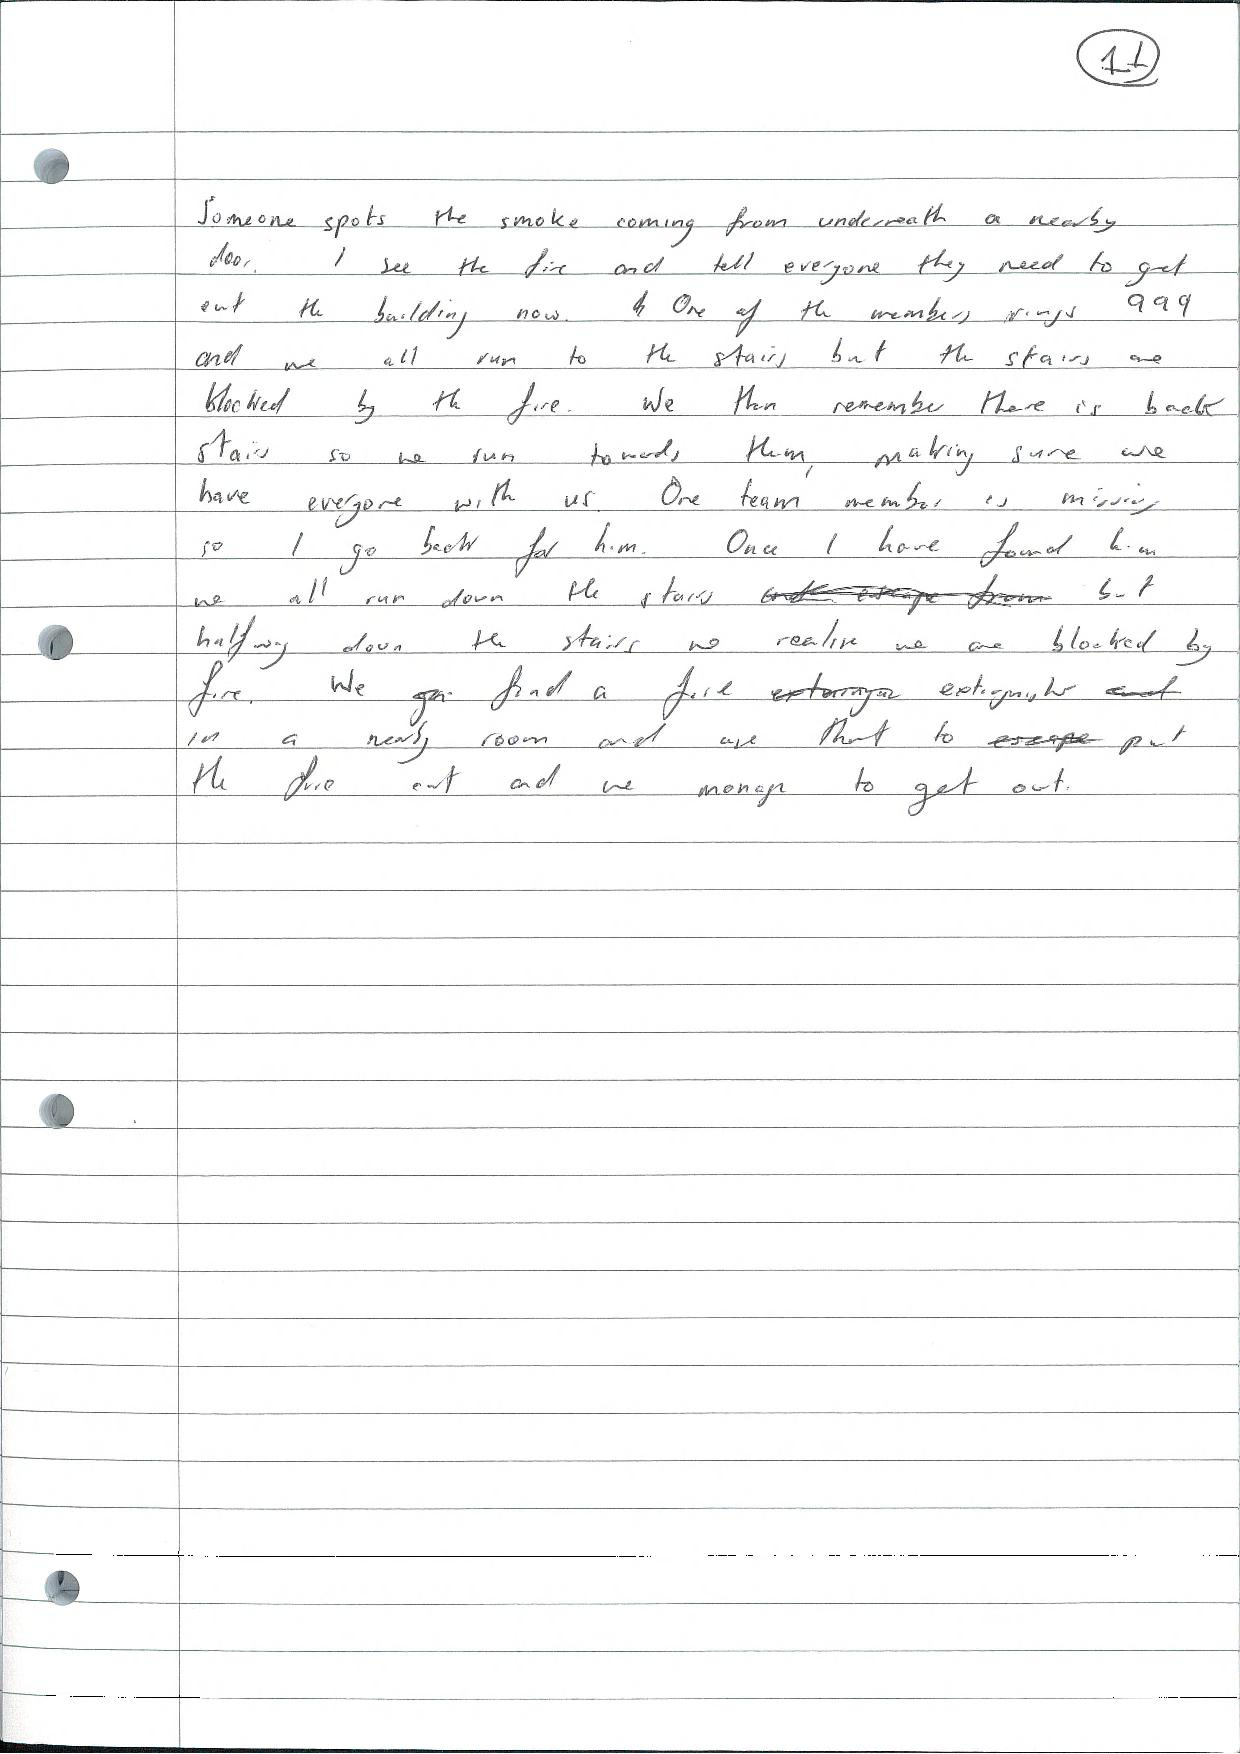 11
Someone spots the smoke coming from underneath a nearby
door. I see the fire and tell everyone they need to get
out the building now. One of the members rings 999
and we all run to the stairs but the stairs are
blocked by the fire. We then remember there is back
stairs so we run towards them, making sure we
have everyone with us. One team member is missing
so I go back for him. Once I have found him
we all run down the stairs and escape from but
halfway down the stairs we realise we are blocked by
fire. We find a fire extinguisher and
in a nearby room and use that to escape put
the fire out and we manage to get out.